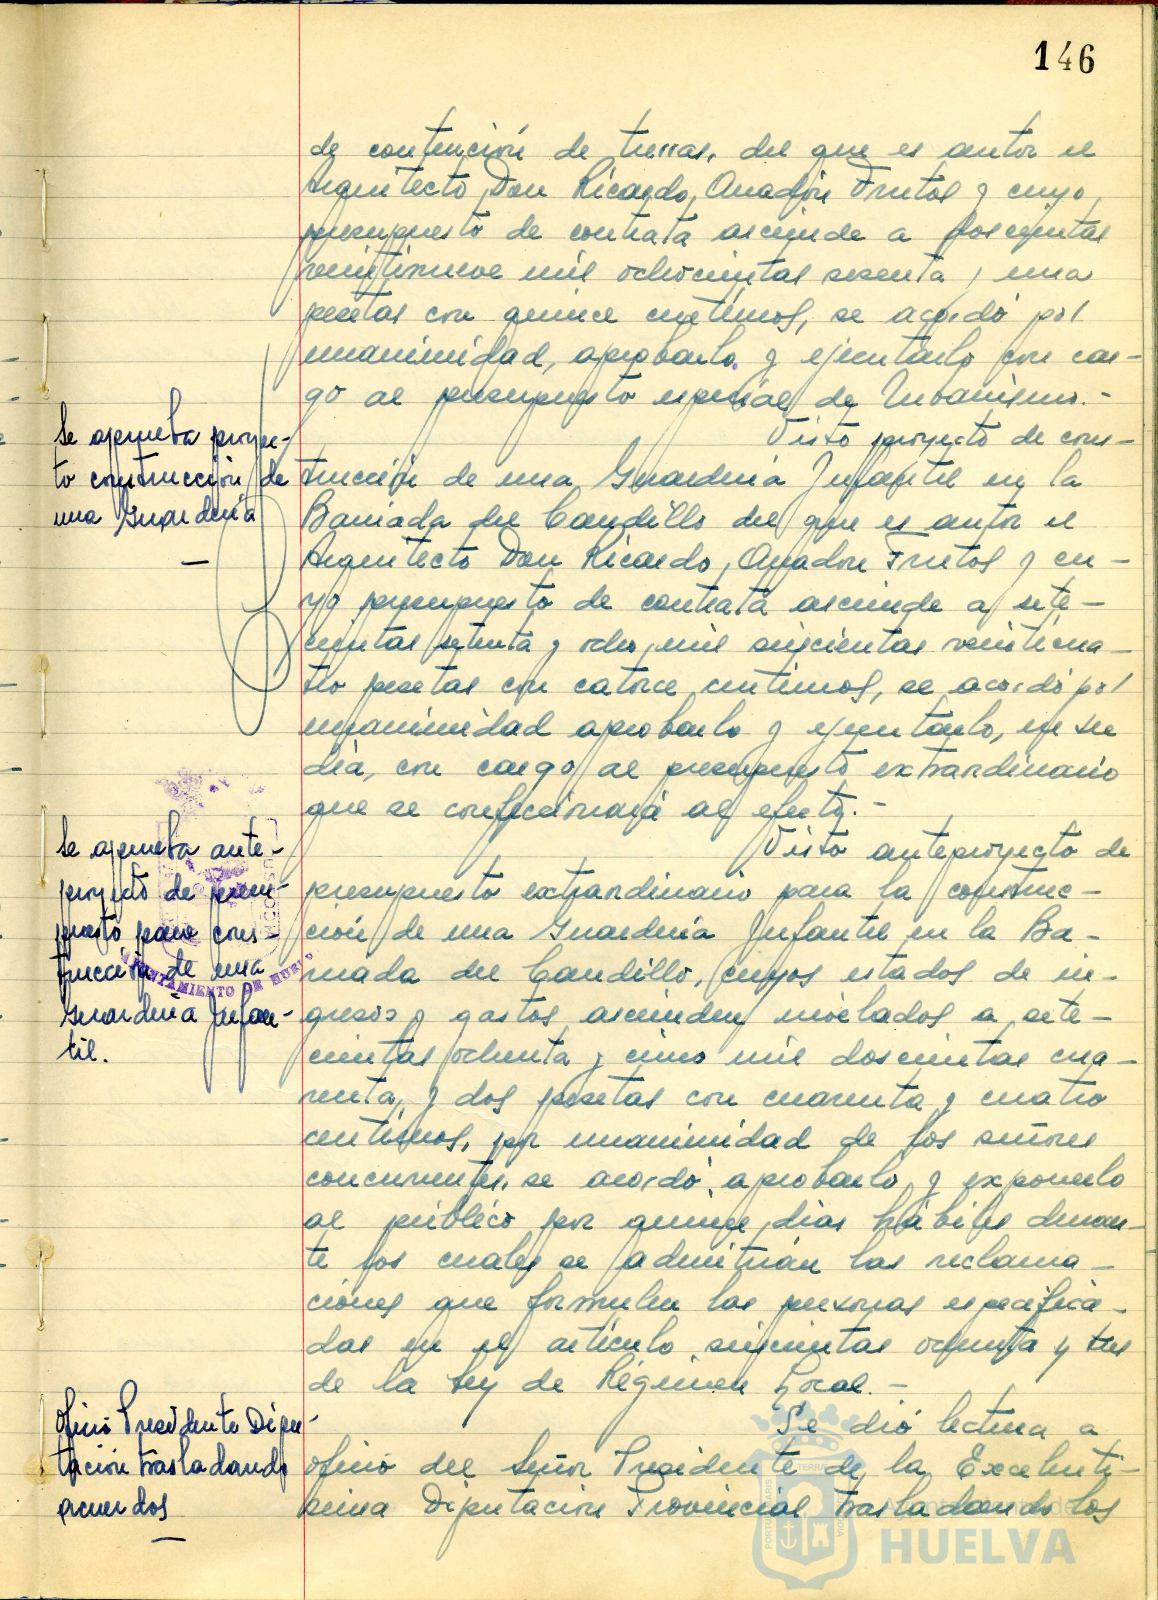 146
de contención de tierras, del que es autor el
Arquitecto Don Ricardo Anadón Frutos y cuyo
presupuesto de contrata asciende a doscientas
veintinueve mil ochocientas sesenta y una
pesetas con quince centimos, se acordó por
unanimidad, aprobarlo y ejecutarlo con car-
go al presupuesto especial de Urbanismo.-
Se aprueba proyec-
to construcción de
una Guardería
—
Visto proyecto de cons-
trucción de una Guardería Infantil en la
Barriada del Caudillo del que es autor el
Arquitecto Don Ricardo Anadón Frutos y cu-
yo presupuesto de contrata asciende a sete-
cientas setenta y ocho mil seiscientas veinticua-
tro pesetas con catorce centimos, se acordó por
unanimidad aprobarlo y ejecutarlo, en su
día, con cargo al presupuesto extraordinario
que se confeccionará al efecto.-
Se aprueba ante-
proyecto de presu-
puesto para cons-
trucción de una
Guardería Infan-
til.
AYUNTAMIENTO DE HUELVA
Visto anteproyecto de
presupuesto extraordinario para la construc-
ción de una Guardería Infantil en la Ba-
rriada del Caudillo, cuyos estados de in-
gresos y gastos ascienden nivelados a sete-
cientas ochenta y cinco mil doscientas cua-
renta y dos pesetas con cuarenta y cuatro
centimos, por unanimidad de los señores
concurrentes, se acordó aprobarlo y exponerlo
al público por quince días hábiles duran-
te los cuales se admitirán las reclama-
ciones que formulen las personas especifica-
das en el artículo seiscientas ochenta y tres
de la Ley de Régimen Local.-
Oficio Presidente Dipu-
tación trasladando
acuerdos
—
Se dió lectura a
oficio del Señor Presidente de la Excelentí-
sima Diputación Provincial trasladando los
HUELVA